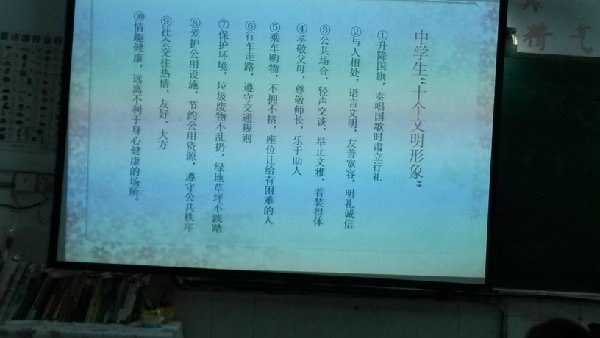 中学生“十个文明形象”
①升降国旗，奏唱国歌时肃立行礼
②与人相处，语言文明，友善宽容，明礼诚信
③公共场合，轻声交谈，举止文雅，着装得体
④孝敬父母，尊敬师长，乐于助人
⑤乘车购物，不拥不挤，座位让给有困难的人
⑥行车走路，遵守交通规则
⑦保护环境，垃圾废物不乱扔，绿地草坪不践踏
⑧爱护公用设施，节约公用资源，遵守公共秩序
⑨社会交往热情、友好、大方
⑩情趣健康，远离不利于身心健康的场所。
精 气